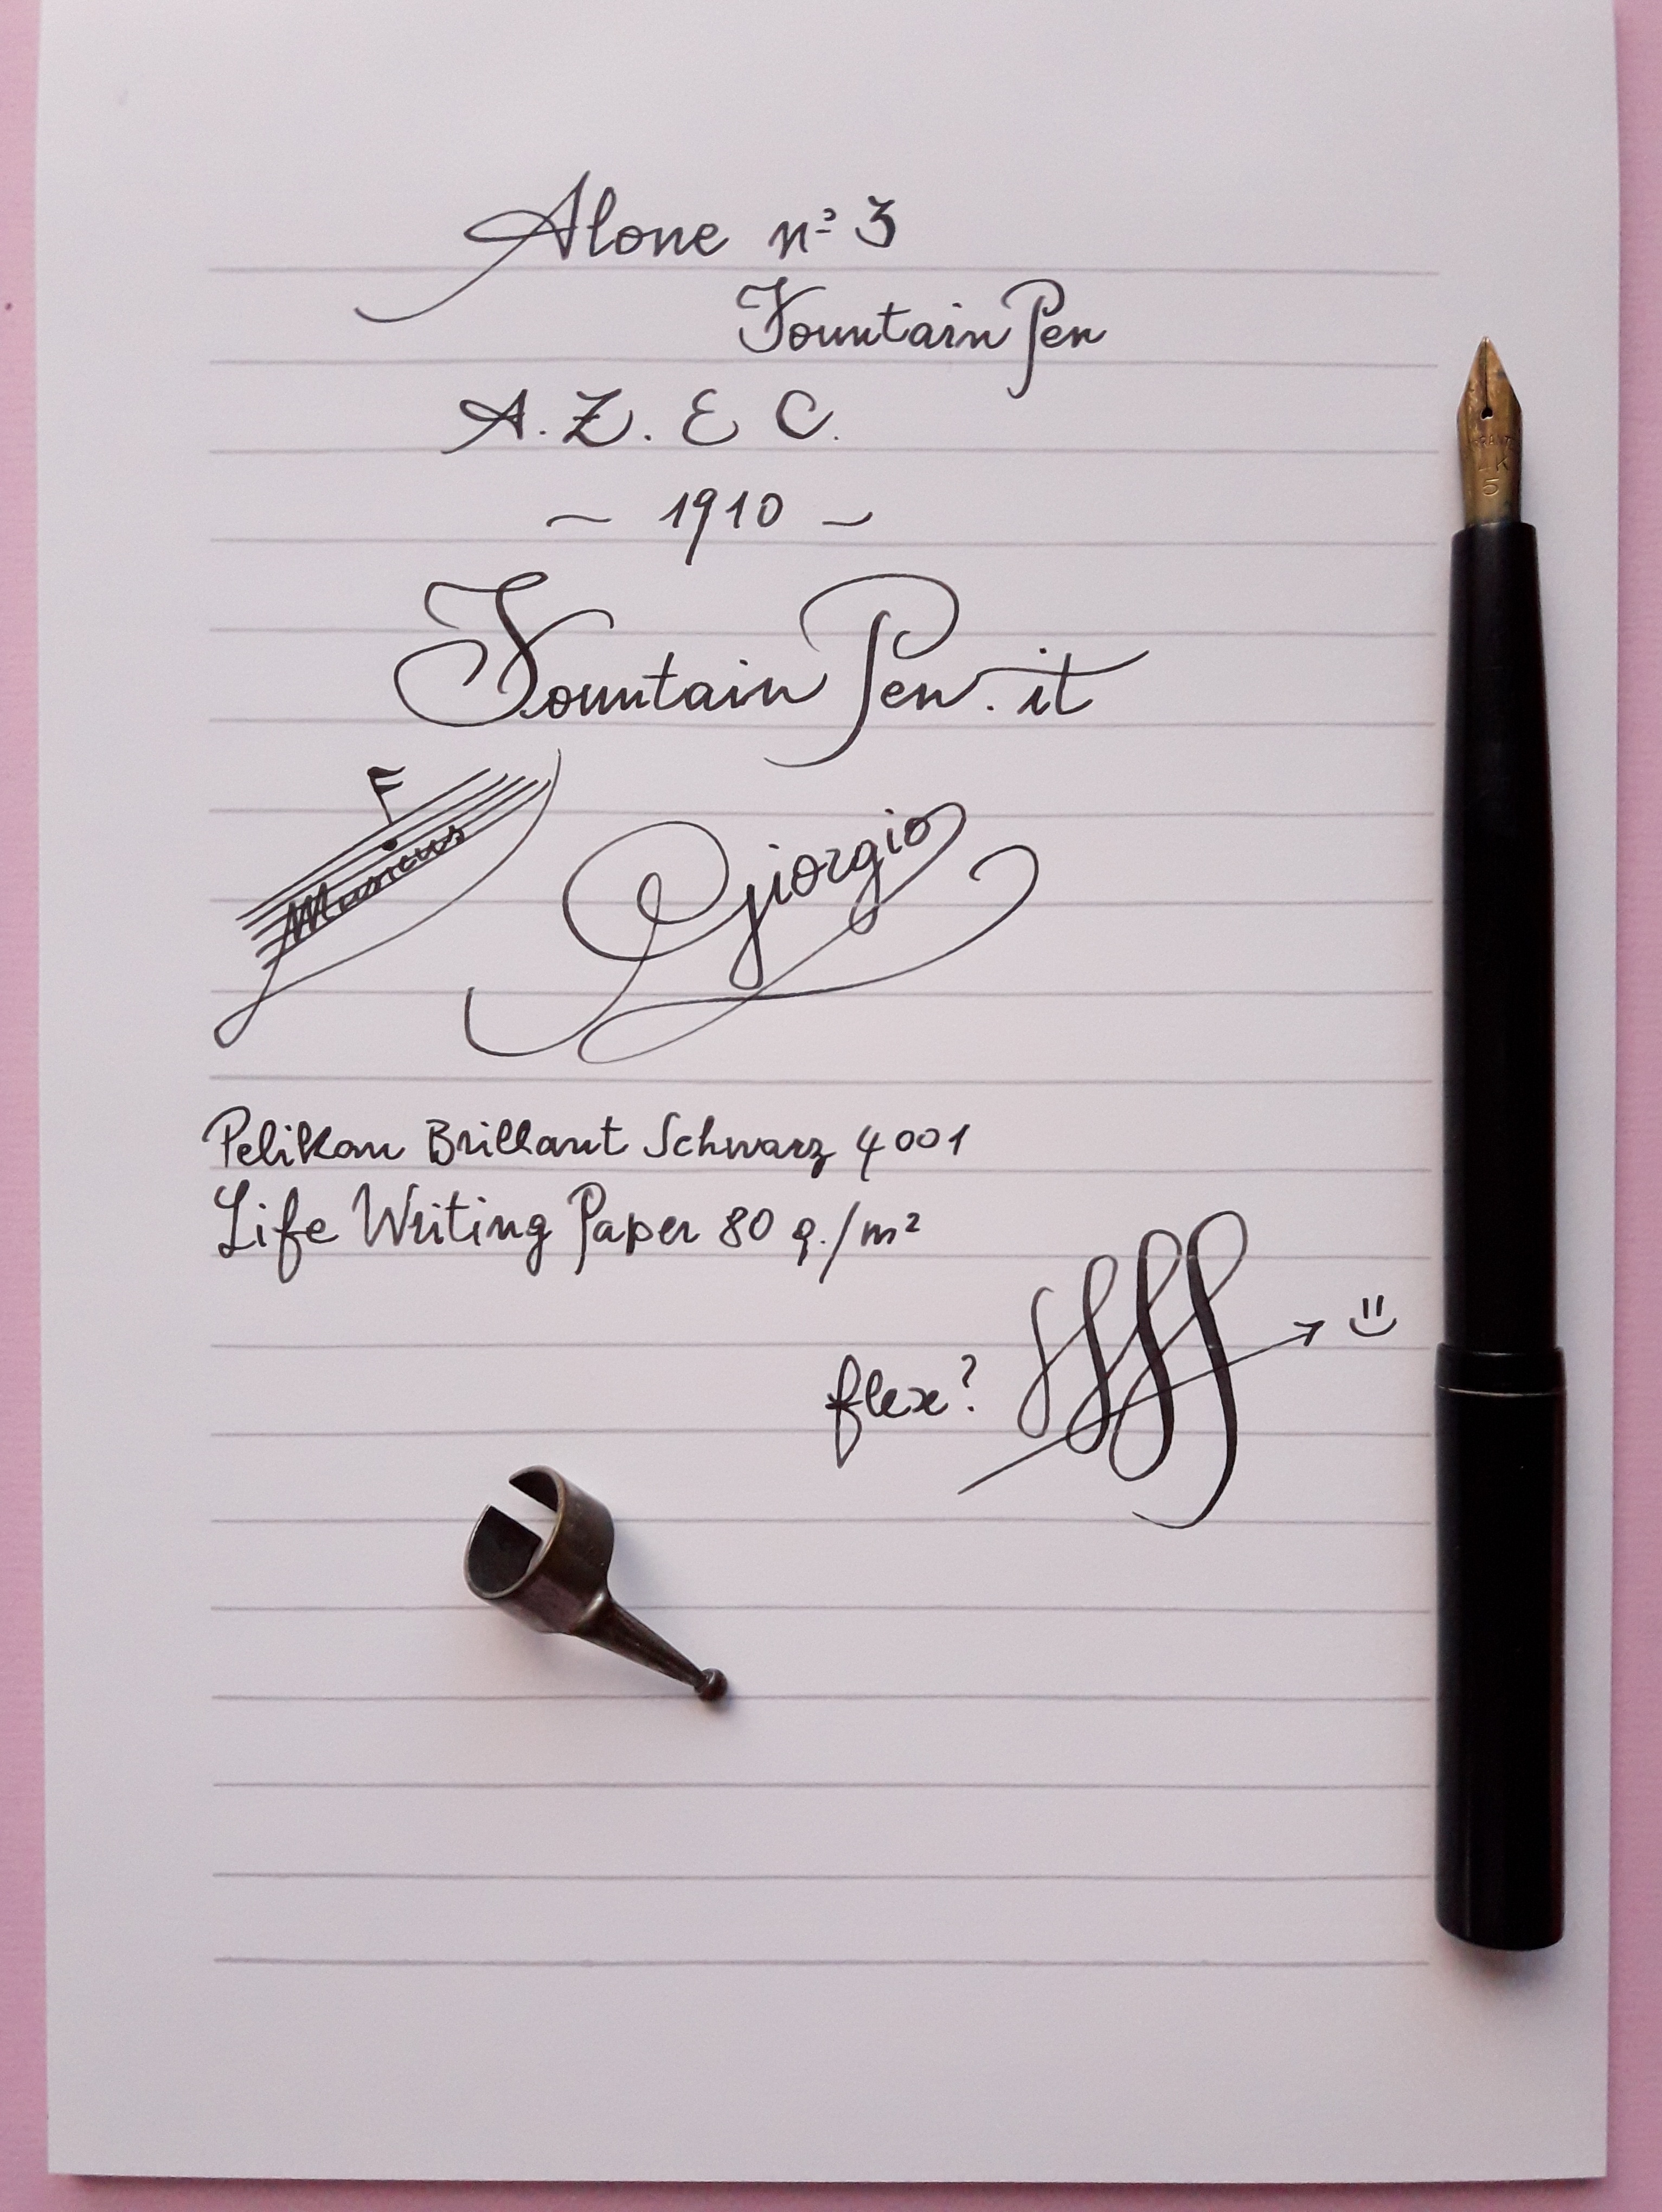 Alone n° 3
Fountain Pen
A. Z. E C.
~ 1910 ~
Fountain Pen.it
Giorgio
Pelikan Brillant Schwarz 4001
Life Writing Paper 80 g./m²
flex?
5